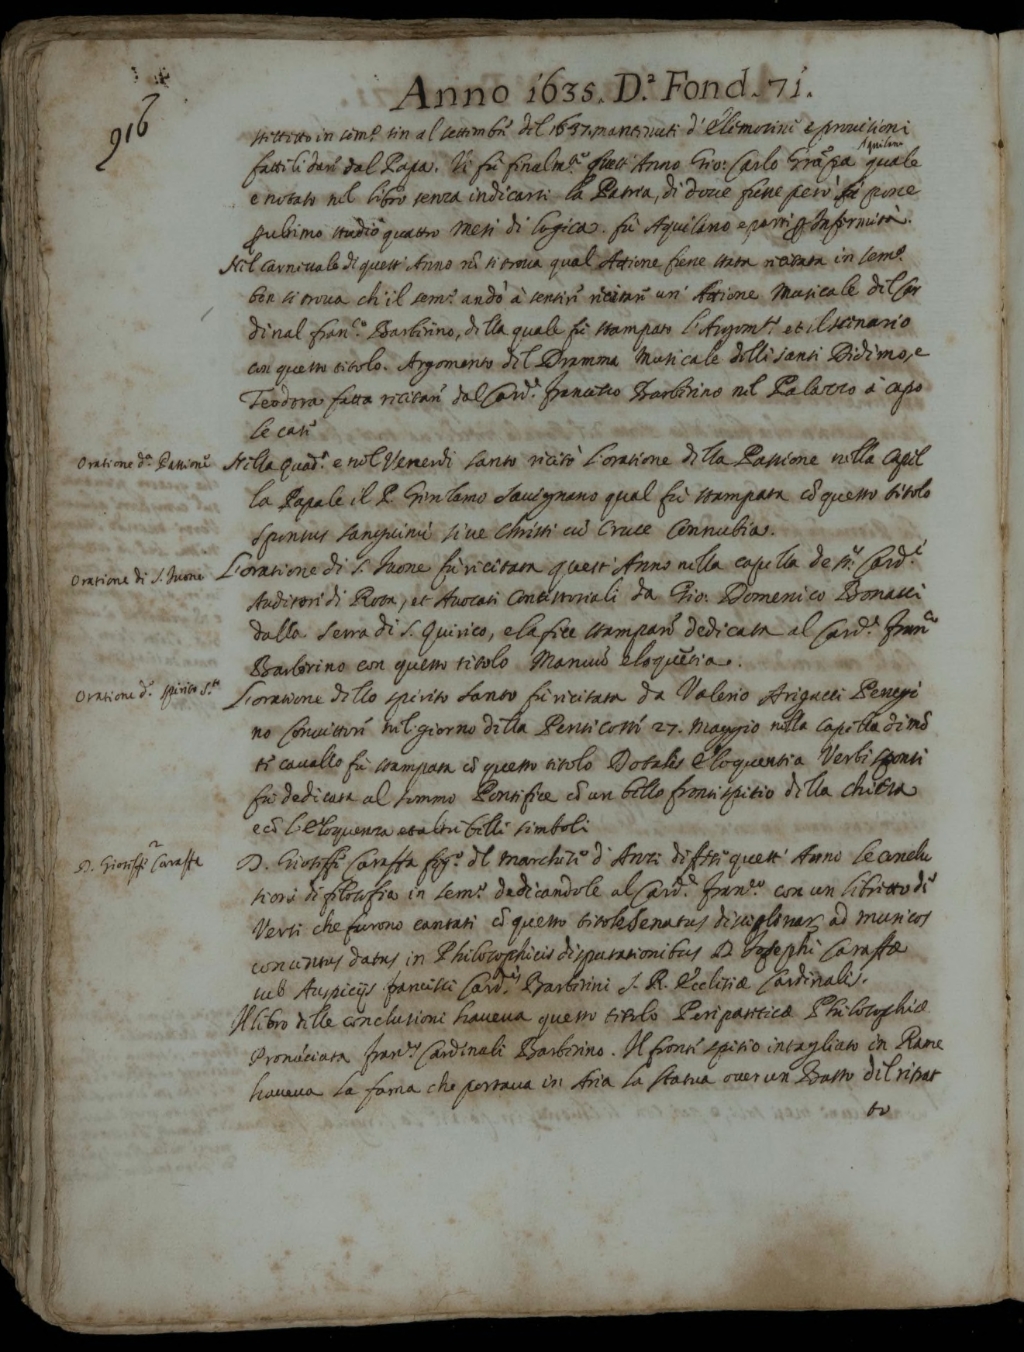 916
Anno 1635. D.ª Fond. 71.
stettero in sem.º sin al settembre del 1637 mantenuti d'Elemosine e provisioni
Aquilano
fatteli dare dal Papa. Vi fu finalm.te quest'Anno Gio: Carlo quale
e notato nel libro senza indicarsi la Patria, di dove fusse però fu
ultimo studiò quattro mesi di logica. fu Aquilano e partì p Infermità.
Nel carnevale di quest'Anno nō si trova qual Attione fusse stata recitata in sem.º
ben si trova ch'il sem.º andò à sentire recitare un'Attione Musicale del Car
dinal Fran.co Barberino, della quale fu stampato l'Argom.to et il scenario
con questo titolo. Argomento del Dramma Musicale delli santi Didimo, e
Teodora fatta recitare dal Card.l Francesco Barberino nel Palazzo à capo
le case
Oratione d.ª Passione
Nella Quad.ª e nel Venerdi santo recitò l'oratione della Passione nella Capel
la Papale il P. Girolamo Savignano qual fu stampata cō questo titolo
Sponsus sanguinū sive Christi cū Cruce Connubia.
Oratione di S. Ivone
L'oratione di S. Ivone fu recitata quest'Anno nella capella de SS.ri Card.li
Auditori di Rota, et Avocati Concistoriali da Gio: Domenico Bonacci
dalla Serra di S. Quirico, e la fece stampare dedicata al Card.l Fran.co
Barberino con questo titolo Manuū eloquētia.
Oratione d.º Spirito S.to
L'oratione dello spirito santo fu recitata da Valerio Arigucci Perugi
no Convittore nel giorno della Pentecoste 27. Maggio nella capella di mō
te cavallo fu stampata cō questo titolo Dotalis Eloquentia Verbi sponsi
fu dedicata al sommo Pontefice cō un bello frontispitio della chiesa
e cō l'Eloquenza et altri belli simboli
D. Gioseffe Caraffa
D. Gioseffe Caraffa fig.º del Marchese d'Anzi difese quest'Anno le conclu
sioni di filosofia in sem.º dedicandole al Card.l Fran.co con un libretto di
Versi che furono cantati cō questo titolo Senatus disciplinar. ad musicos
concentus datus in Philosophicis disputationibus D. Josephi Caraffæ
sub Auspicijs francisci Card.lis Barberini S. R. Ecclesiæ Cardinalis.
Il libro delle conclusioni haveva questo titolo Peripateticæ Philosophiæ
Pronūciata Fran.co Cardinali Barberino. Il frontispitio intagliato in Rame
haveva la fama che portava in Aria la statua over un Busto del ritrat
to